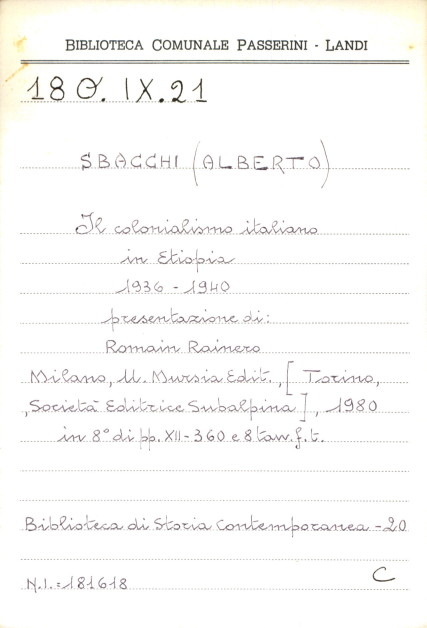 BIBLIOTECA COMUNALE PASSERINI - LANDI
18 O. IX.21
SBACCHI (ALBERTO)
Il colonialismo italiano
in Etiopia
1936 - 1940
presentazione di:
Romain Rainero
Milano, U. Mursia Edit., [Torino,
,Società Editrice Subalpina], 1980
in 8° di pp. XII-360 e 8 tav. f. t.
Biblioteca di Storia Contemporanea -20
N.I.=181618
C